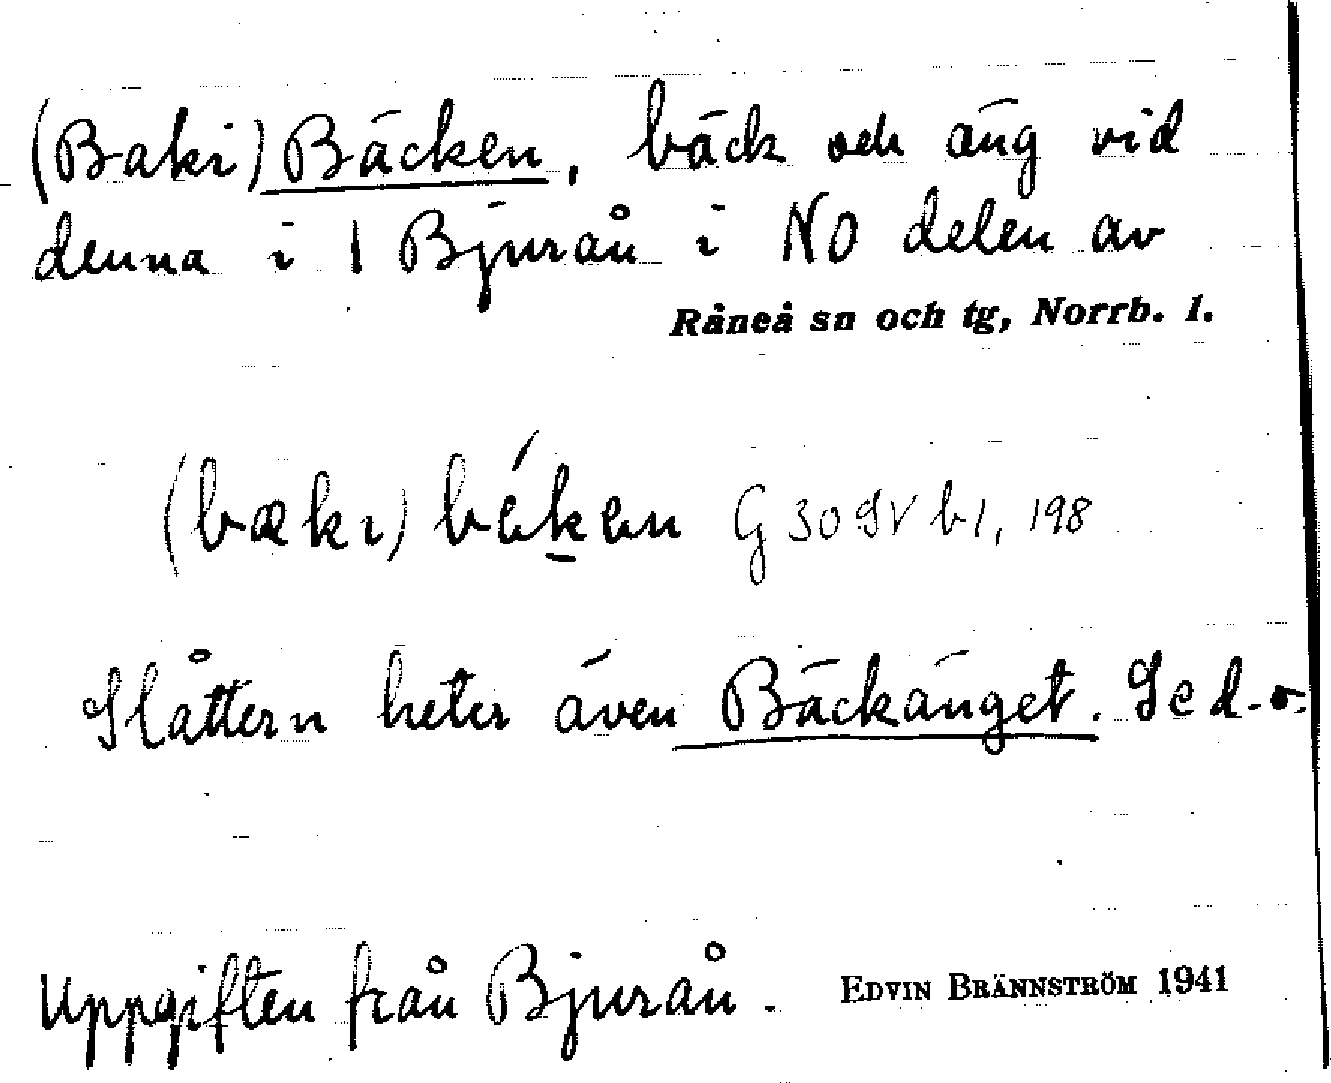 (Baki) Bäcken, bäck och äng vid
denna i 1 Bjurån i NO delen av
Råneå sn och tg, Norrb. l.
(bækı) bék̠en G 30 SV b1, 198
Slåttern heter även Bäckänget. Se d.o.
Uppgiften från Bjurån. EDVIN BRÄNNSTRÖM 1941